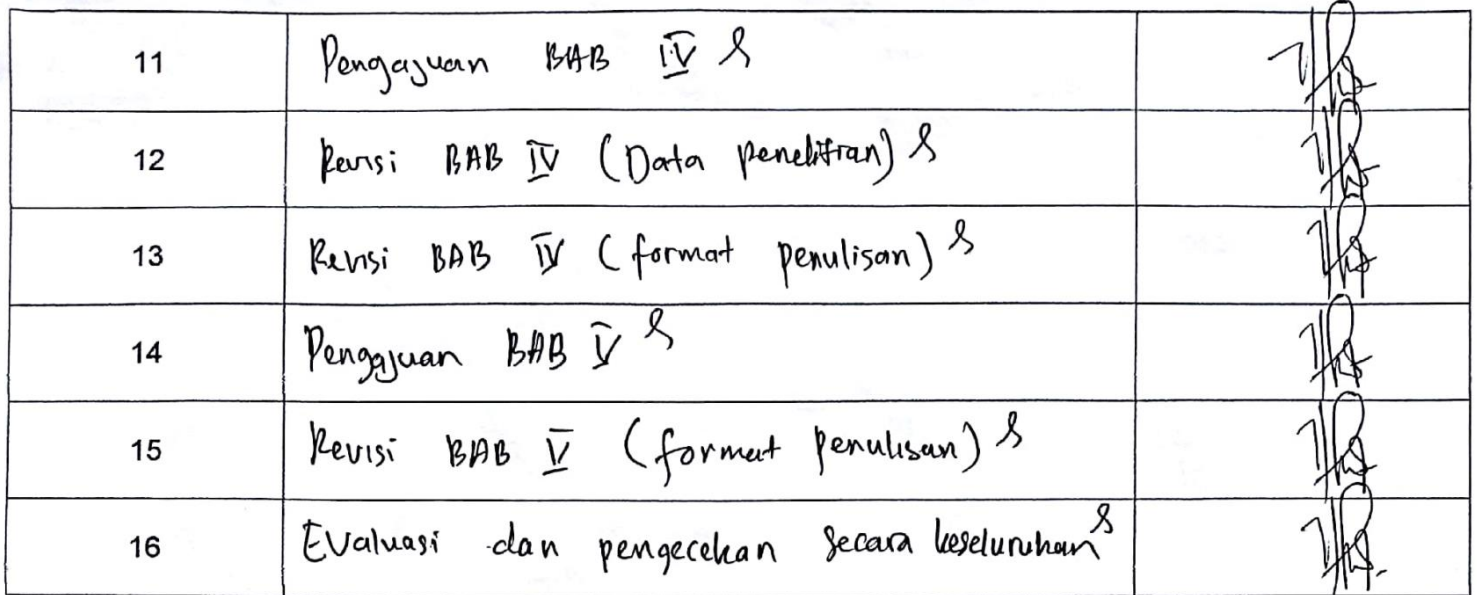 11 Pengajuan BAB IV
12 Revisi BAB IV (Data penelitian)
13 Revisi BAB IV (format penulisan)
14 Pengajuan BAB V
15 Revisi BAB V (format penulisan)
16 Evaluasi dan pengecekan secara keseluruhan